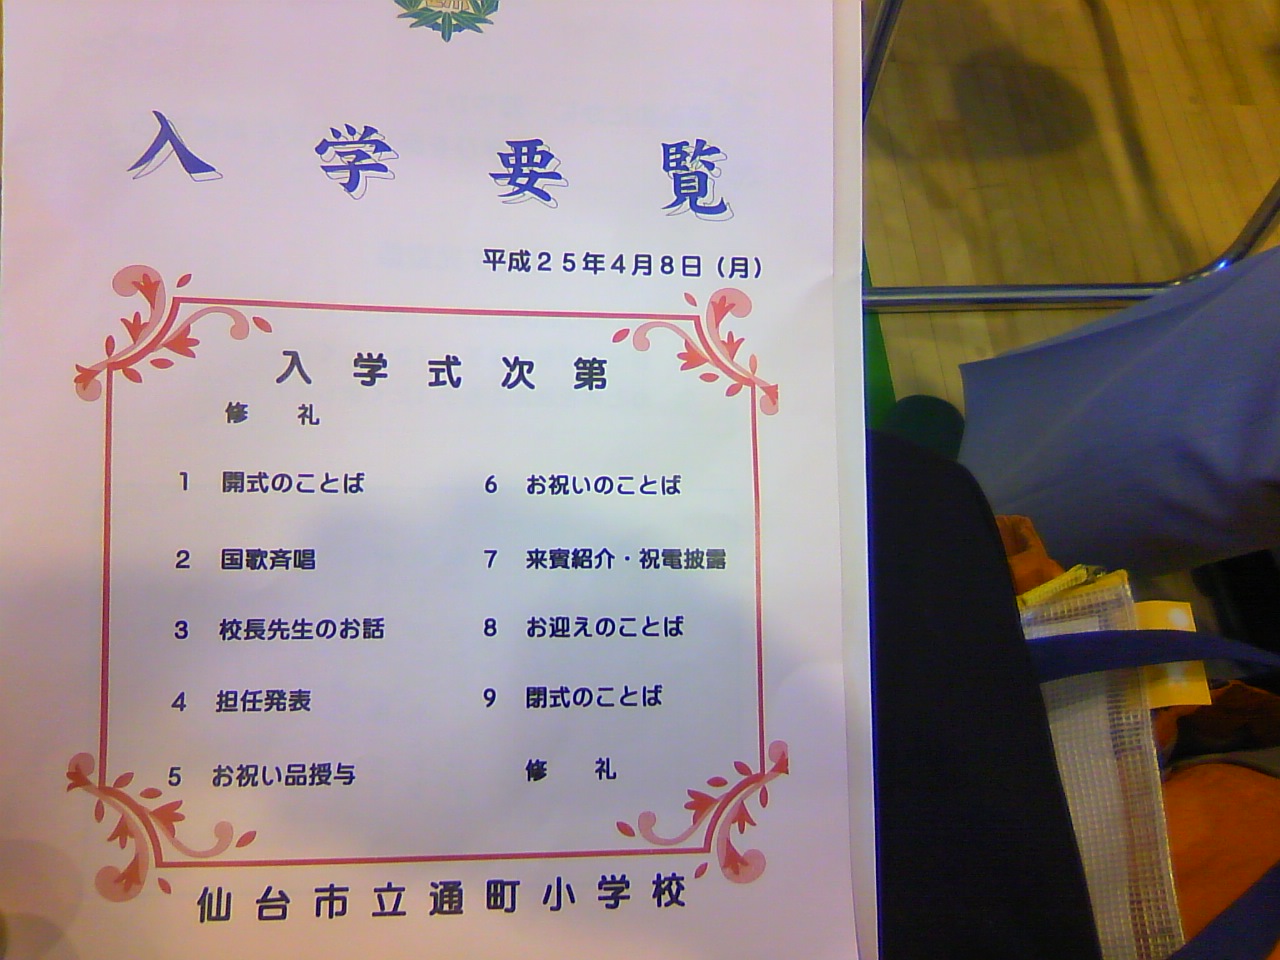 入学要覧
平成25年4月8日（月）
入学式次第
修礼
1 開式のことば
2 国歌斉唱
3 校長先生のお話
4 担任発表
5 お祝い品授与
6 お祝いのことば
7 来賓紹介・祝電披露
8 お迎えのことば
9 閉式のことば
修礼
仙台市立通町小学校